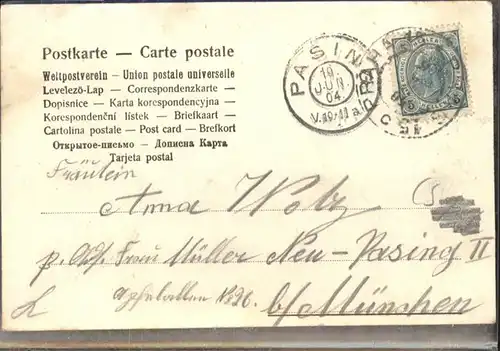 Postkarte — Carte postale
Weltpostverein – Union postale universelle
Levelező-Lap — Correspondenzkarte —
Dopisnice — Karta korespondencyjna —
Korespondenční lístek — Briefkaart —
Cartolina postale — Post card — Brefkort
Открытое-письмо — Дописна Карта
Tarjeta postal
PASING
19.
JUN.
04
V.10-11
5 5
Fräulein
Anna Wolz
p. Adr. Frau Müller Neu-Pasing II
No 36.
b/München